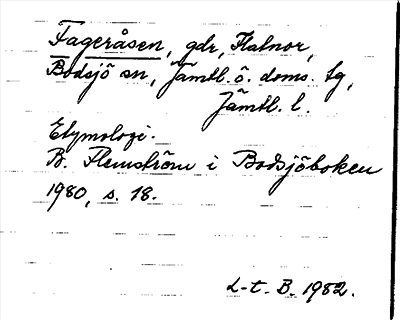 Fageråsen, gdr, Flatnor,
Bodsjö sn, Jämtl. ö. doms. tg,
Jämtl. l.
Etymologi.
B. Flemström i Bodsjöboken
1980, s. 18.
L-t. B. 1982.